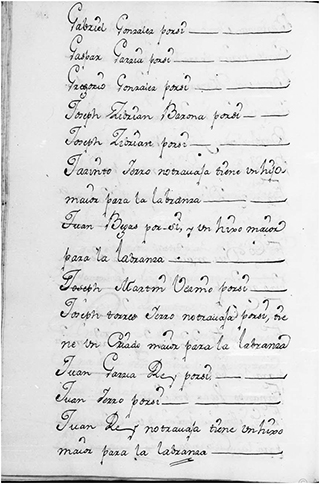 Gabriel Gonzalez porsi
Gaspar Garcia porsi
Gregorio Gonzalez porsi
Joseph Zidrian Barona porsi
Joseph Zidrian porsi
Jazinto Torro notravaja tiene un hijo
maior para la labranza
Juan Bejas por si, y un hixo maior
para la labranza
Joseph Martin Vermo porsi
Joseph torres Torro notravaja porsi, tie
ne un Criado maior para la labranza
Juan Garcia Rey porsi
Juan Torro porsi
Juan Rey notravaja tiene un hixo
maior para la labranza